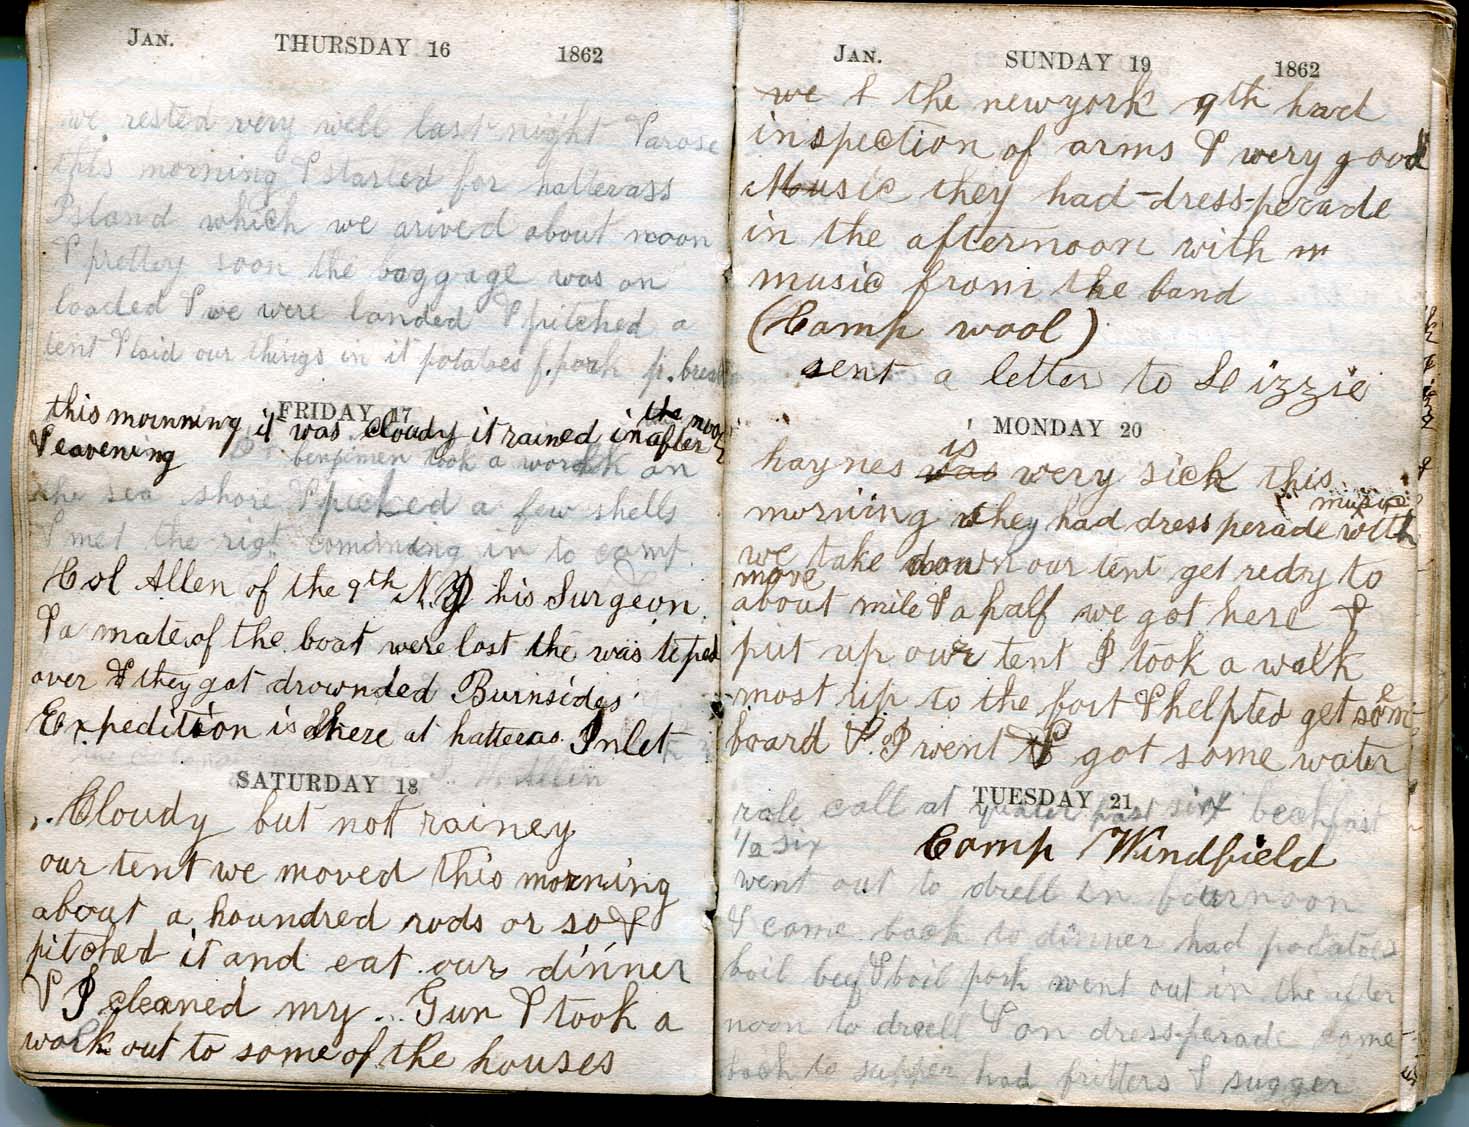 JAN. THURSDAY 16 1862
we rested very well last night & arose
this morning & started for hatterass
Island which we arived about noon
& prettey soon the baggage was on
loaded & we were landed & pitched a
tent & laid our things in it potatoes f. pork p. breat
FRIDAY 17
this mornning it was cloudy it rained in the after noon
& eavening benjimen took a worlk on
the sea shore & picked a few shells
& met the rigt comming in to camp
Col Allen of the 9th N.Y his Surgeon
& a mate of the boat were lost the was teped
over & they got drownded Burnsides
Expedition is here at hatteras Inlet
SATURDAY 18
Cloudy but not rainey
our tent we moved this morning
about a houndred rods or so &
pitched it and eat our dinner
& I cleaned my Gun & took a
wolk out to some of the houses
JAN. SUNDAY 19 1862
we & the newyork 9th had
inspection of arms & wery good
Music they had dress-perade
in the afternoon with m
music from the band
(Camp wool)
sent a letter to Lizzie
MONDAY 20
is
haynes was wery sick this
morning they had dress perade with music
we take down our tent get redy to
move
about mile & a half we got here &
put up our tent I took a walk
most up to the fort & helpted get some
board & I went & got some water
TUESDAY 21
role call at quater past six beckfast
1/2 six Camp Windfield
went out to drell in fournoon
& came back to dinner had podatoes
boil beef & boil pork went out in the after
noon to drell & on dress-perade came
back to supper had fritters & sugger